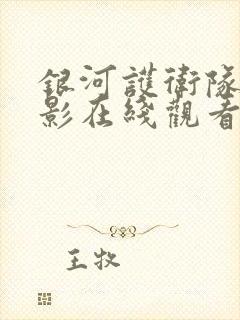 銀河護衛隊
影在綫觀看
王牧